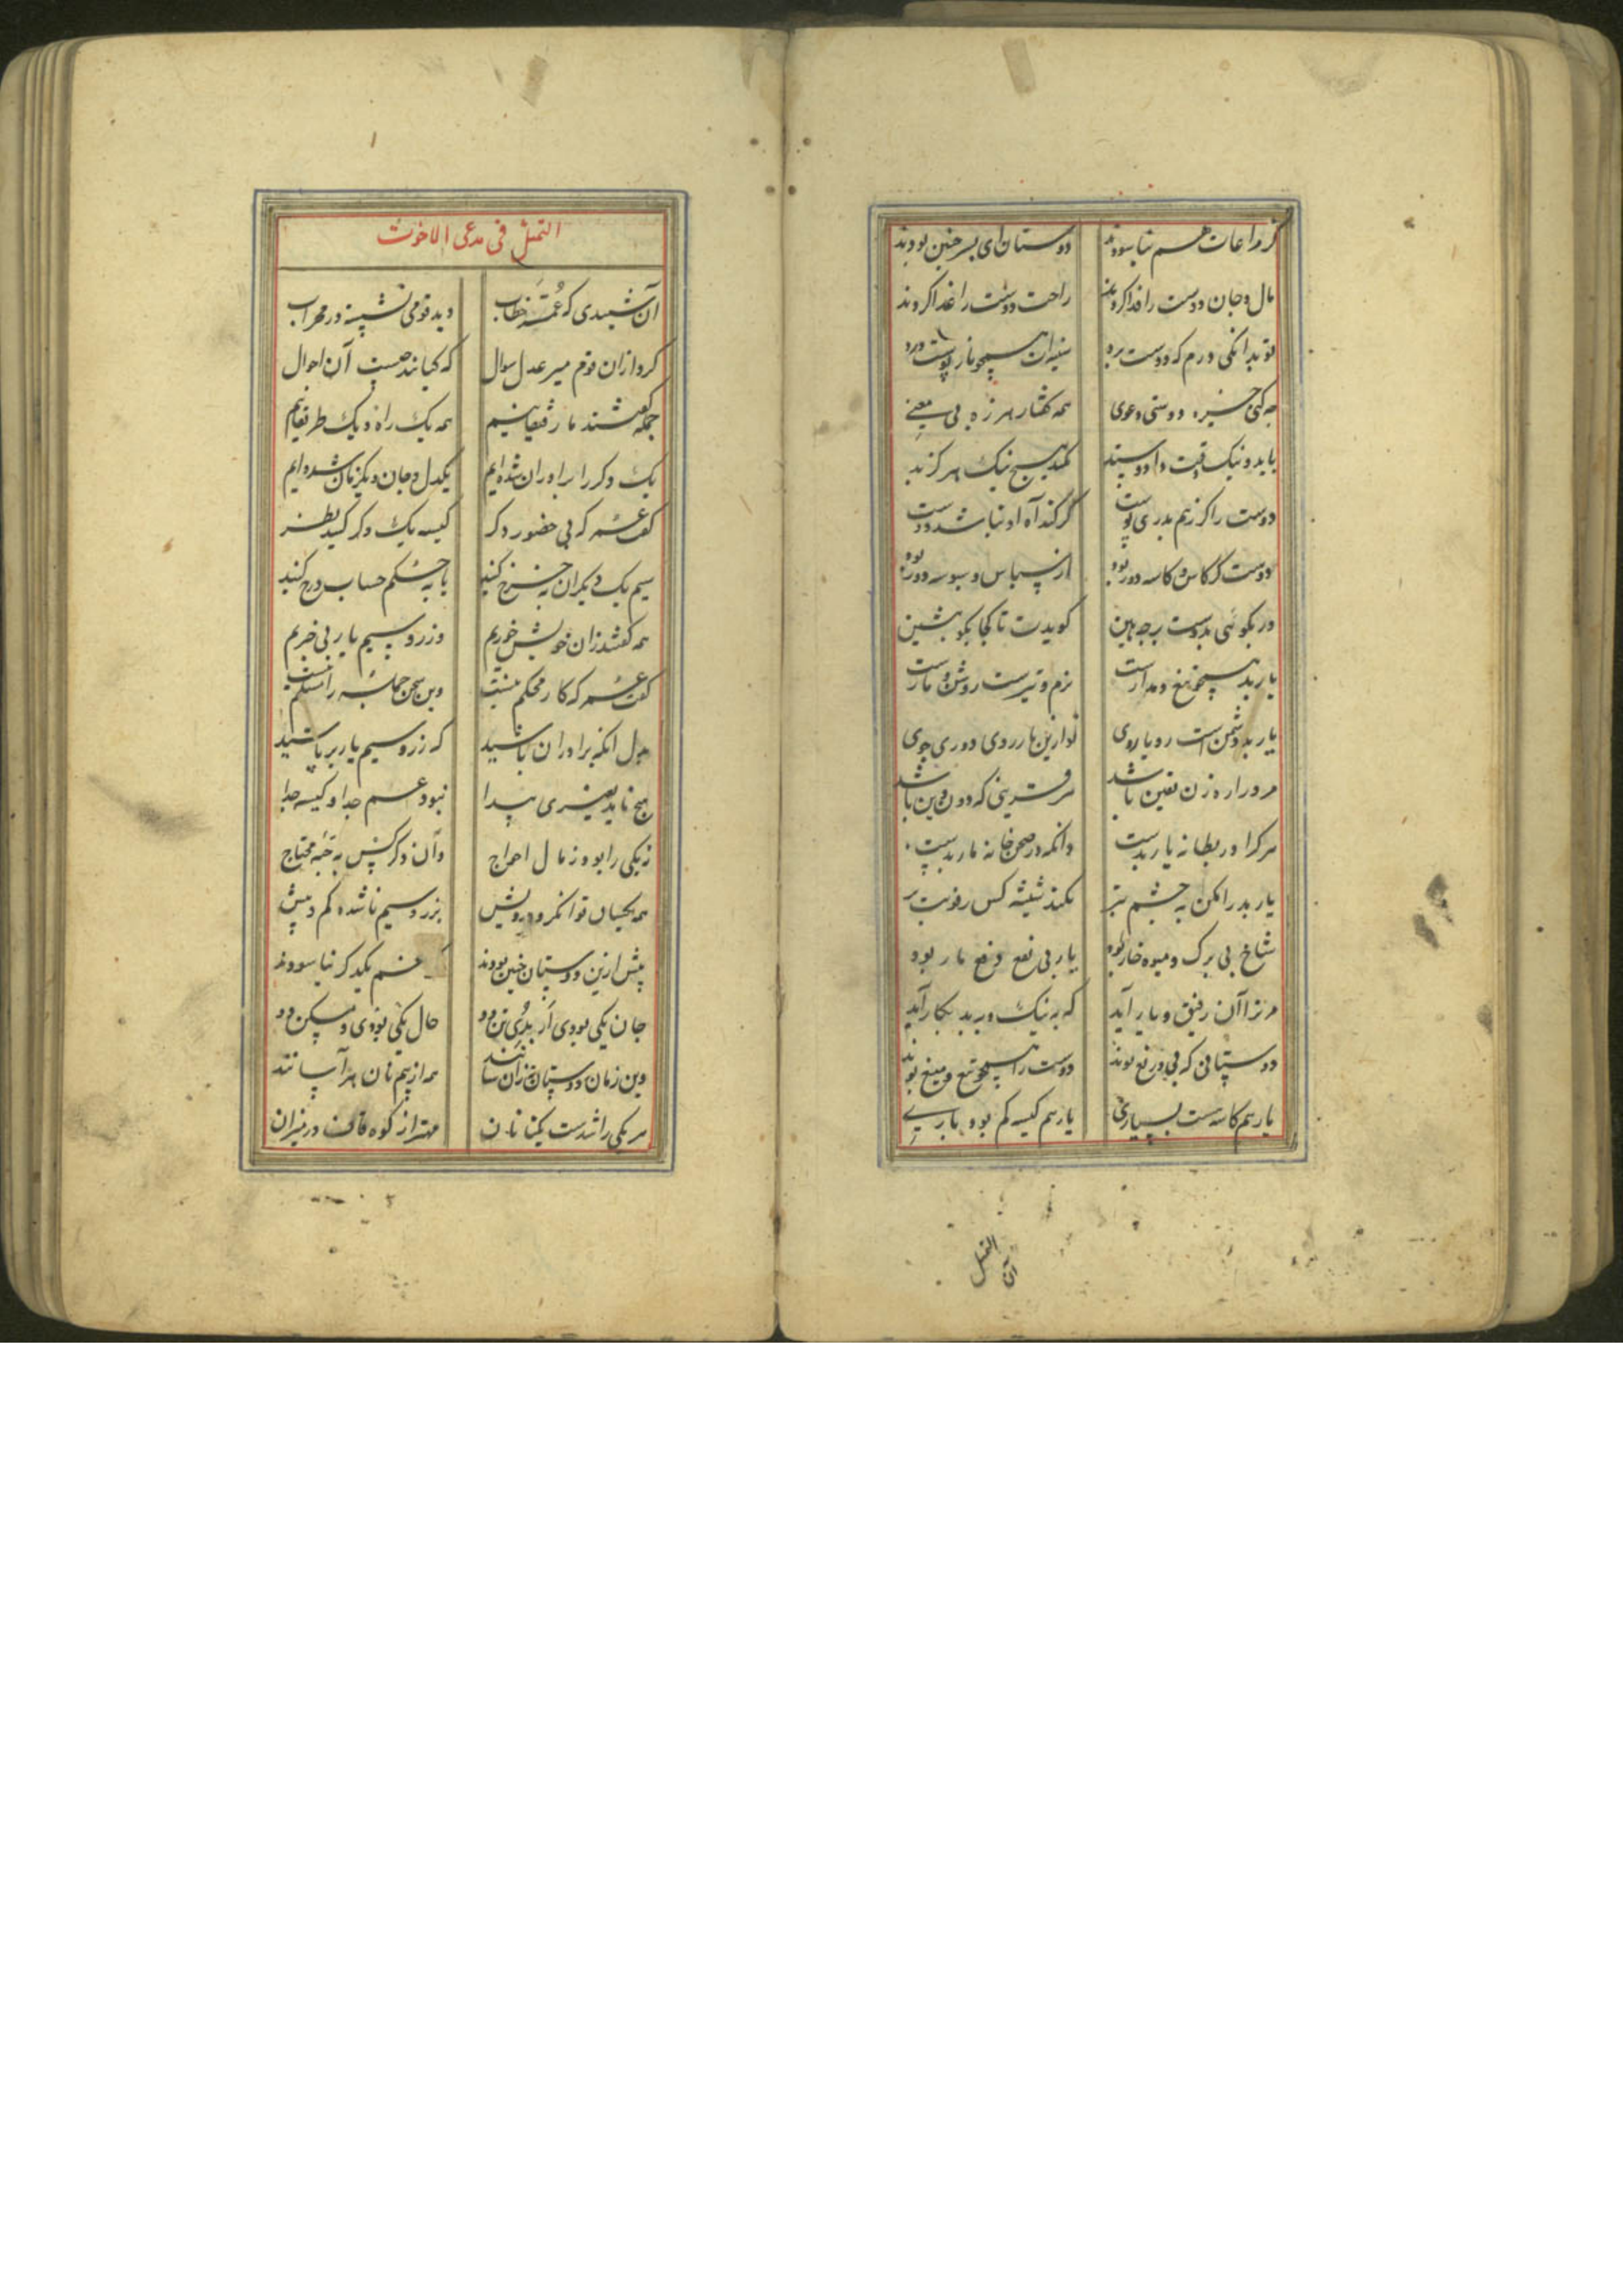 کز مراعات هم نیاسودند دوستان ای پسر چنین بودند
مال و جان دوست را فدا کردند راحت دوست را غدا کردند
تو بدانکی درم که دوست برد سینه ات همچو نار پوست درد
چه کنی خیره دوستی دعوی همه گفتار هرزه بی معنی
با بد و نیک وقت داد و ستد نکند هیچ نیک هرگز بد
دوست را کر زهم بدری پوست کر کند آه او نباشد دوست
دوست کر کاس و کاسه دور بود از سپاس و سبوسه دور بود
ور بکوئی بدوست برجه هین کویدت تا کجا بکو بنشین
یار بد همچو تیغ و مدارست نرم و تیرست روشن و مارست
یار بد دشمن است رویاروی تو ازین مار روی دوری جوی
مرد را ره زن یقین باشد هر قرینی که دون دین باشد
هر کرا در بطانه یار بدست دانکه در صحن خانه مار بدست
یار بد را مکن به چشم تیز نکند شیشه کس رفوبتبر
شاخ بی برک و میوه خار بود یار بی نفع و دفع مار بود
مر ترا آن رفیق و یار آید که به نیک و به بد بکار آید
دوستانی که بی دریغ بوند دوست را همچو تیغ و میغ بوند
یار هم کاسه ست بسیاری یار هم کیسه کم بود باری
التمثل
آن
التمثل فی مدعی الاخوت
آن شنیدی که عمر خطاب دید قومی نشسته در محراب
کرد از آن قوم میر عدل سوال که کیانند چیست آن احوال
جمله گفتند ما رفیقانیم همه یک راه و یک طریقانیم
یک دکر را برادران شده ایم یکدل و جان و یکزبان شده ایم
گفت عمر که بی حضور دکر کیسه یک دکر کنید نظر
سیم یک دیگران به خرج کنید یا به حکم حساب درج کنید
همه گفتند زان خویش خوریم وز زر و سیم یار بی خبریم
گفت عمر که کار محکم نیست وین سخن جمله را مسلم نیست
بدل آنکه برادران باشید که زر و سیم یار بر پاشید
هیچ ناید بصیری پیدا نبود عمر جدا و کیسه جدا
ز یکی را بود ز مال احراج وآن دکر کس به حبه محتاج
همه یکسان توانکر و درویش بزر و سیم ناشده کم و بیش
پیش ازین دوستان چنین بودند غم یکدکر نیاسودند
جان یکی بودی ار بدی تن دو حال یکی بودی و مسکن دو
وین زمان دوستان نه زان سانند همه از بیم نان هراسانند
هر یکی را شدست یکتا نان مهتر از کوه قاف در میزان